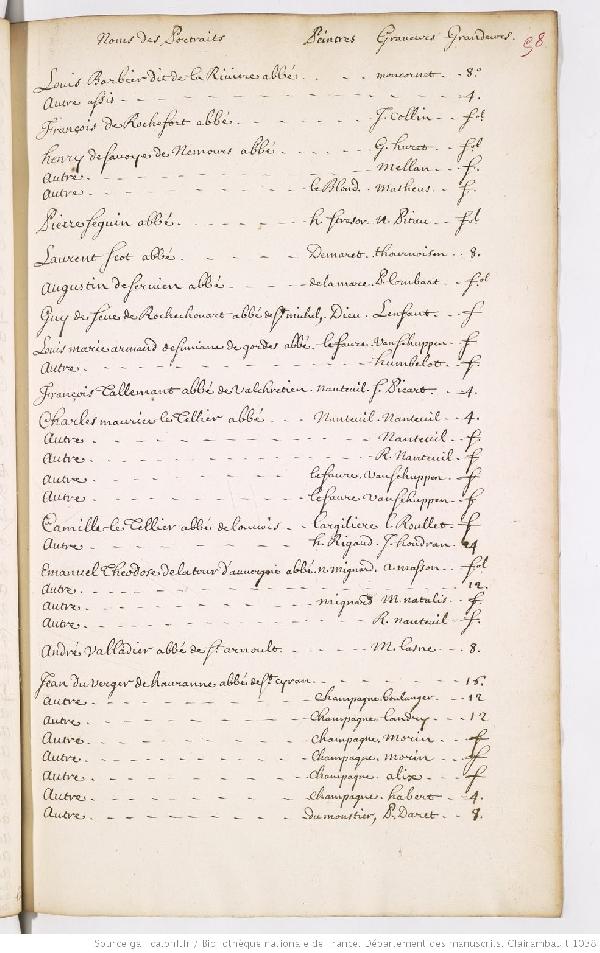 Noms des Portraits Peintres Graveurs Grandeurs. 98
Louis Barbier dit de la Riviere abbé. moncornet 8.°
Autre assis 4.
François de Rochefort abbé. J. Collin fol
henry de savoye de Nemours abbé G. huret fol
Autre. Mellan f.
Autre le Bland. Matheus f.
Pierre Seguin abbé. N. Pitau fol
Laurent Scot abbé. Demaret. thournoisen 8.
Augustin de servien abbé delamare. P. Lombart f.ol
Guy de Seve de Rochechouart abbé de st. michel, Dieu. Lenfant. f
Louis marie armand de simiane de gordes abbé lefevre. Vanschuppen f
Autre humbelot f.
François Tallemant abbé de Valchretien. nanteuil. f. Picart. 4.
Charles maurice le Tellier abbé Nanteuil. Nanteuil 4.
Autre. Nanteuil f.
Autre. R. Nanteuil f.
Autre. lefevre. Vanschuppen f
Autre. lefevre. Vanschuppen f
Camille le Tellier abbé de louvois. Largiliere l. Roullet f
Autre. h. Rigaud. J. houdran 4
Emanuel Theodose de la tour d'auvergne abbé. n. mignard. a. masson fol
Autre. 12.
Autre. mignard. M. natalis f.
Autre. R. nanteuil f.
André Valladier abbé de st. arnoult. M. lasne 8.
Jean du verger de hauranne abbé de st. cyran 16.
Autre. Champagne. boulanger. 12
Autre. Champagne. Landry. 12
Autre. Champagne. Morin f
Autre. Champagne. morin f
Autre. Champagne. alix f
Autre. Champagne. habert 4.
Autre. dumoustier, P. Daret 8.
Source gallica.bnf.fr / Bibliothèque nationale de France. Département des manuscrits. Clairambault 1038